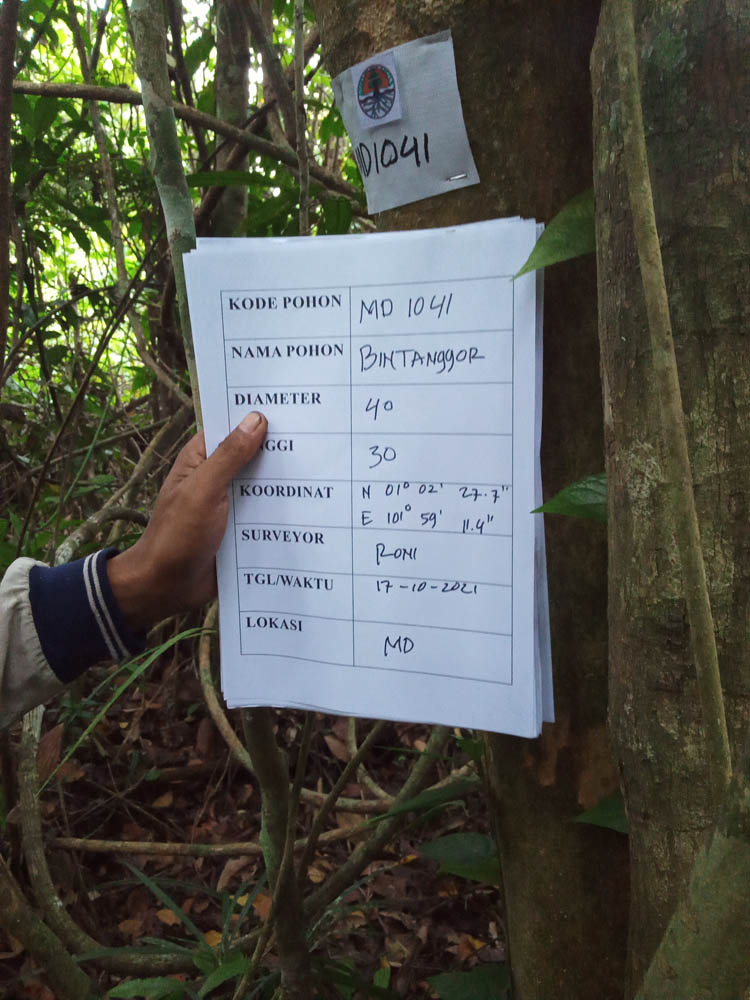 MD1041
KODE POHON MD 1041
NAMA POHON BINTANGGOR
DIAMETER 40
NGGI 30
KOORDINAT N 01° 02' 27.7"
E 101° 59' 11.4"
SURVEYOR RONI
TGL/WAKTU 17-10-2021
LOKASI MD